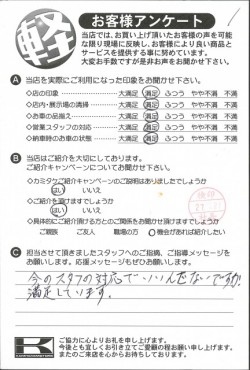 軽
お客様アンケート
当店では、お買い上げ頂いたお客様の声を可能
な限り現場に反映し、お客様により良い商品と
サービスを提供する事に努めています。
大変お手数ですが是非お声をお聞かせ下さい。
A 当店を実際にご利用になった印象をお聞かせ下さい。
◇店の印象 大満足 満足 ふつう やや不満 不満
◇店内・展示場の清掃 大満足 満足 ふつう やや不満 不満
◇お車の品揃え 大満足 満足 ふつう やや不満 不満
◇営業スタッフの対応 大満足 満足 ふつう やや不満 不満
◇納車時のお車の状態 大満足 満足 ふつう やや不満 不満
B 当店はご紹介を大切にしております。
ご紹介キャンペーンについてお聞かせ下さい。
◇カミタウご紹介キャンペーンのご説明はありましたでしょうか
はい いいえ
◇ご紹介を頂けますでしょうか
はい いいえ
◇具体的にご紹介頂ける方とのご関係をお聞かせ頂けますでしょうか
ご親族 ご友人 職場の方 機会があれば紹介したい
C 担当させて頂きましたスタッフへのご指摘、ご指導メッセージを
お願いします。応援メッセージもぜひお願いします。
今のスタッフの対応でいいんぢないですか!
満足しています。
K
ご協力に心よりお礼を申し上げます。
今後とも宜しくお引き立てご愛顧の程お願い申し上げます。
またのご来店を心からお待ちしております。